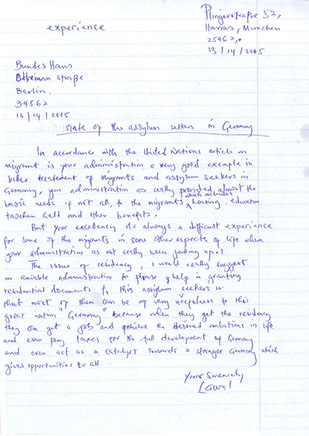 experience
52,
München
13/14/2005
Bundes Haus
Berlin.
34562
13/14/2005
State of the assylum seekers in Germany
In accordance with the United Nations article on
migrant is your administration a very good example in
better treatement of migrants and assylum seekers in
Germany, your administration as really provided almost the
basic needs if not all, to the migrants which includes housing, education
taschen Geld and other benefits.
But your excellency, it's always a difficult experience
for some of the migrants in some other aspects of life where
your administration as not really been looking up.
The issue of residency, I would really suggest
administration to please help in granting
residential documents to this assylum seekers
that most of them can be of very to this
great nation "Germany" because when they get the residency
they can get a job and achieve the desired ambitions in life
and even pay taxes for the full development of Germany
and even act as a catalyst towards a stronger Germany which
gives opportunities to all.
Yours Sincerely